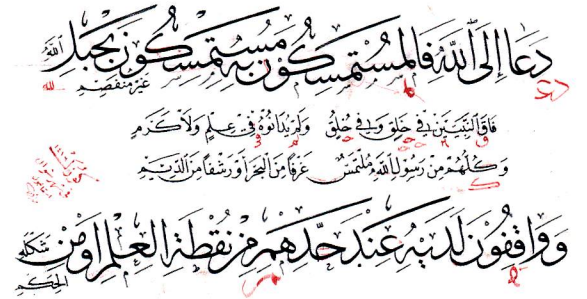 دَعَا إِلَى اللهِ فَالْمُسْتَمْسِكُونَ بِهِ مُسْتَمْسِكُونَ بِحَبْلِ اللهِ غَيْرِ مُنْفَصِمِ
فَاقَ النَّبِيِّينَ فِي خَلْقٍ وَفِي خُلُقٍ وَلَمْ يُدَانُوهُ فِي عِلْمٍ وَلَا كَرَمِ
وَكُلُّهُمْ مِنْ رَسُولِ اللهِ مُلْتَمِسٌ غَرْفًا مِنَ الْبَحْرِ أَوْ رَشْفًا مِنَ الدِّيَمِ
وَوَاقِفُونَ لَدَيْهِ عِنْدَ حَدِّهِمِ مِنْ نُقْطَةِ الْعِلْمِ أَوْ مِنْ شَكْلَةِ الْحِكَمِ